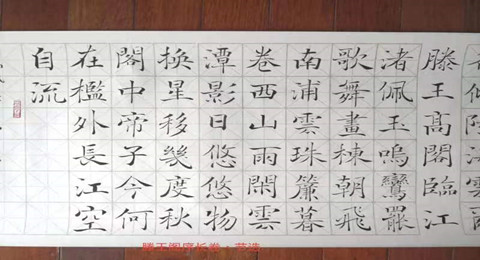 滕王高閣臨江
渚佩玉鳴鸞罷
歌舞畫棟朝飛
南浦雲珠簾暮
卷西山雨閑雲
潭影日悠悠物
換星移幾度秋
閣中帝子今何
在檻外長江空
自流
滕王阁序长卷